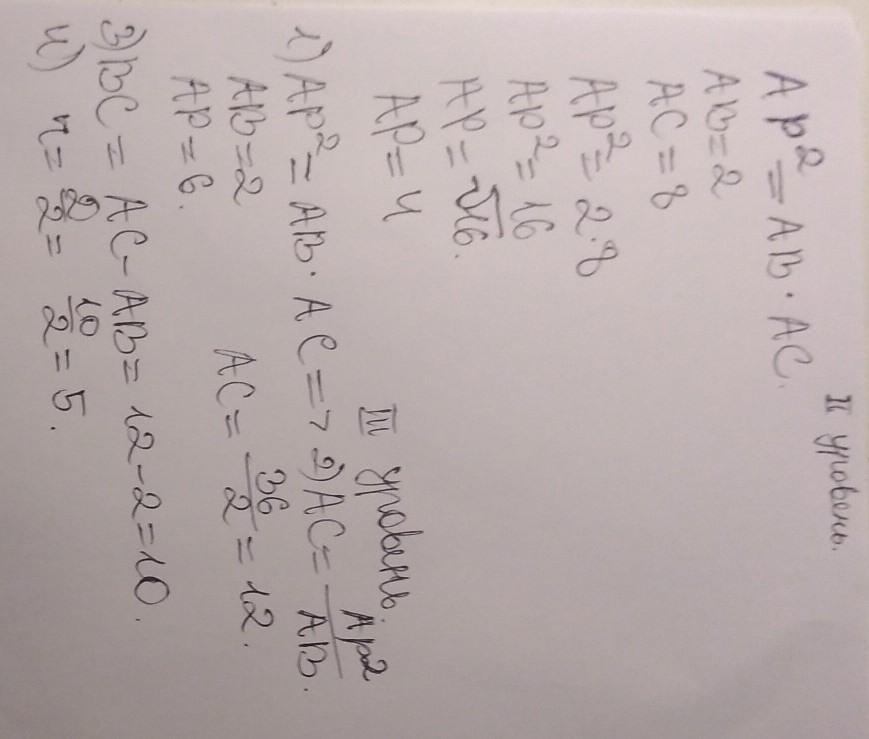 II уровень.
AP² = AB · AC.
AB = 2
AC = 8
AP² = 2·8
AP² = 16
AP = √16.
AP = 4
III уровень.
1) AP² = AB · AC => 2) AC = AP²/AB.
AB = 2 AC = 36/2 = 12.
AP = 6.
3) BC = AC - AB = 12 - 2 = 10.
4) r = D/2 = 10/2 = 5.